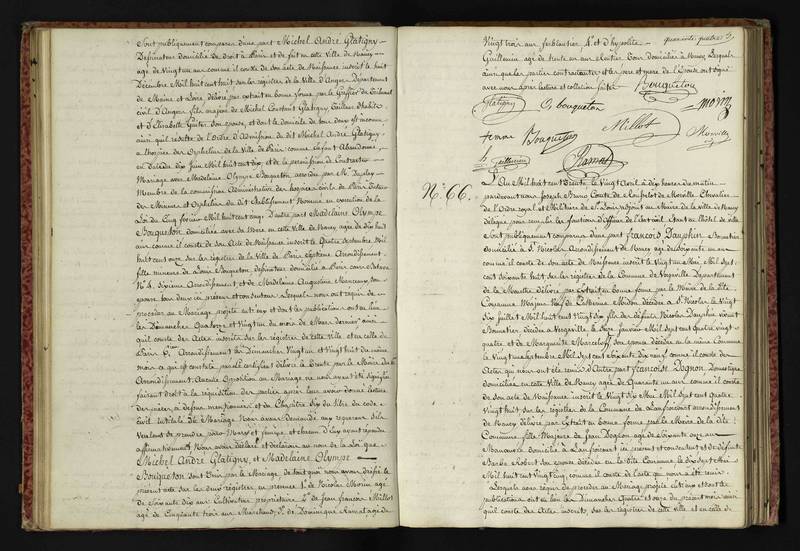 Sont publiquement comparu d'une part Michel André Glatigny
Dessinateur domicilié de droit à Paris et de fait en cette Ville de Nancy
agé de Vingt un ans comme il conste de son acte de Naissance inscrit le huit
Décembre Mil huit cent huit sur les registres de la Ville d'Angers Département
de Maine et Loire délivré par extrait en bonne forme par le Greffier du Tribunal
civil d'Angers, fils majeur de Michel Constant Glatigny, Tailleur d'habits
et d'Elisabeth Guiter son épouse, et dont le domicile de tous deux est inconnu
ainsi qu'il résulte de l'ordre d'Admission du dit Michel André Glatigny
à l'hospice des Orphelins de la Ville de Paris comme Enfant Abandonné,
en date du dix Juin Mil huit cent dix, et de la permission de Contracter
Mariage avec Madelaine Olympe Bouqueton accordée par M.
Membre de la commission Administrative des hospices civils de Paris Tuteur
des Mineurs et Orphelins du dit Etablissement Nommé en exécution de la
Loi du Cinq février Mil huit cent cinq. D'autre part Madelaine Olympe
Bouqueton domiciliée avec sa Mère en cette Ville de Nancy agée de dix huit
ans comme il conste de son Acte de Naissance inscrit le Quatre Septembre Mil
huit cent onze sur les registres de la Ville de Paris Septième Arrondissement
fille mineure de Louis Bouqueton, dessinateur domicilié à Paris
N.º 4, sixième Arrondissement et de Madelaine Augustine
tous deux ici présens et consentans. Lesquels nous ont requis de
procéder au Mariage projeté entr'eux et dont les publications ont eu lieu
les Dimanches Quatorze et Vingt un du mois de Mars dernier ainsi
qu'il conste des Actes inscrits sur les registres de cette Ville et en celle de
Paris 6.e Arrondissement les Dimanches Vingt un et Vingt huit du même
mois ce qui est constaté par le certificat délivré le trente par le Maire du 6.e
Arrondissement. Aucune Opposition au Mariage ne nous ayant été signifiée
faisant droit à la réquisition des parties après leur avoir donné lecture
des pièces ci dessus mentionnées et du Chapitre Six du titre du code
civil intitulé du Mariage Nous avons demandé aux requérans s'ils
veulent se prendre pour Mari et femme, et chacun d'eux ayant répondu
affirmativement Nous avons déclaré et déclarons au nom de la Loi que
Michel André Glatigny, et Madelaine Olympe
Bouqueton sont Unis par le Mariage de tout quoi nous avons dressé le
présent acte sur les deux registres en présence 1.º de Nicolas Morin agé
de Soixante dix ans Cultivateur propriétaire 2.º de Jean François Millot
agé de Cinquante trois ans Marchand, 3.º de Dominique Ramat agé de
quarante quatre
Vingt trois ans ferblantier 4.º et d'hypolite
Guillemin agé de trente un ans Rentier Tous domiciliés à Nancy Lesquels
ainsi que les parties contractantes et les père et mère de l'épouse ont signé
avec nous après lecture et collection faites
Bouqueton
Glatigny O. bouqueton morin
femme Bouqueton Millot
h. Guillemin Ramat
N.º 66.
L'An Mil huit cent Trente le Vingt Avril à dix heures du matin
pardevant nous Joseph Bruno Comte de Chevalier
de l'Ordre royal et Militaire de S.t Louis adjoint au Maire de la Ville de Nancy
délégué pour remplir les fonctions d'officier de l'état civil étant en l'hôtel de Ville
sont publiquement comparus d'une part François Dauphin
domicilié à S.t Nicolas Arrondissement de Nancy agé de Soixante un ans
comme il conste de son acte de Naissance inscrit le Vingt un Mai Mil sept
cent Soixante huit sur les registres de la Commune de Vergaville Département
de la Meurthe délivré par extrait en bonne forme par le Maire de la dite
Commune, Majeur Veuf de Catherine Midon décédée à S.t Nicolas le Vingt
Six Juillet Mil huit cent Vingt dix fils des défunts Nicolas Dauphin vivant
Bonnetier décédé à Vergaville le Onze Janvier Mil sept cent quatre vingt
quatre et de Marguerite Marcelloff son épouse décédée en la même Commune
le Vingt un Septembre Mil sept cent Soixante dix neuf comme il conste des
Actes qui nous ont été remis D'autre part Françoise Dognon Domestique
domiciliée en cette Ville de Nancy agée de Quarante un ans comme il conste
de son acte de Naissance inscrit le Vingt Six Mai Mil sept cent Quatre
Vingt huit sur les registres de la Commune de Lanfroicourt arrondissement
de Nancy délivré par Extrait en bonne forme par le Maire de la dite
Commune, fille Majeure de Jean Dognon agé de Soixante onze ans
Manoeuvre domicilié à Lanfroicourt ici présent et consentant et de défunte
Barbe Robert son épouse décédée en la dite Commune le Dix sept Mai
Mil huit cent Vingt cinq, comme il conste de l'acte qui nous a été remis.
Lesquels nous requis de procéder au Mariage projeté entr'eux et dont les
publications ont eu lieu les Dimanches Quatre et onze du présent mois ainsi
qu'il conste des Actes inscrits sur les registres de cette Ville et en celle de